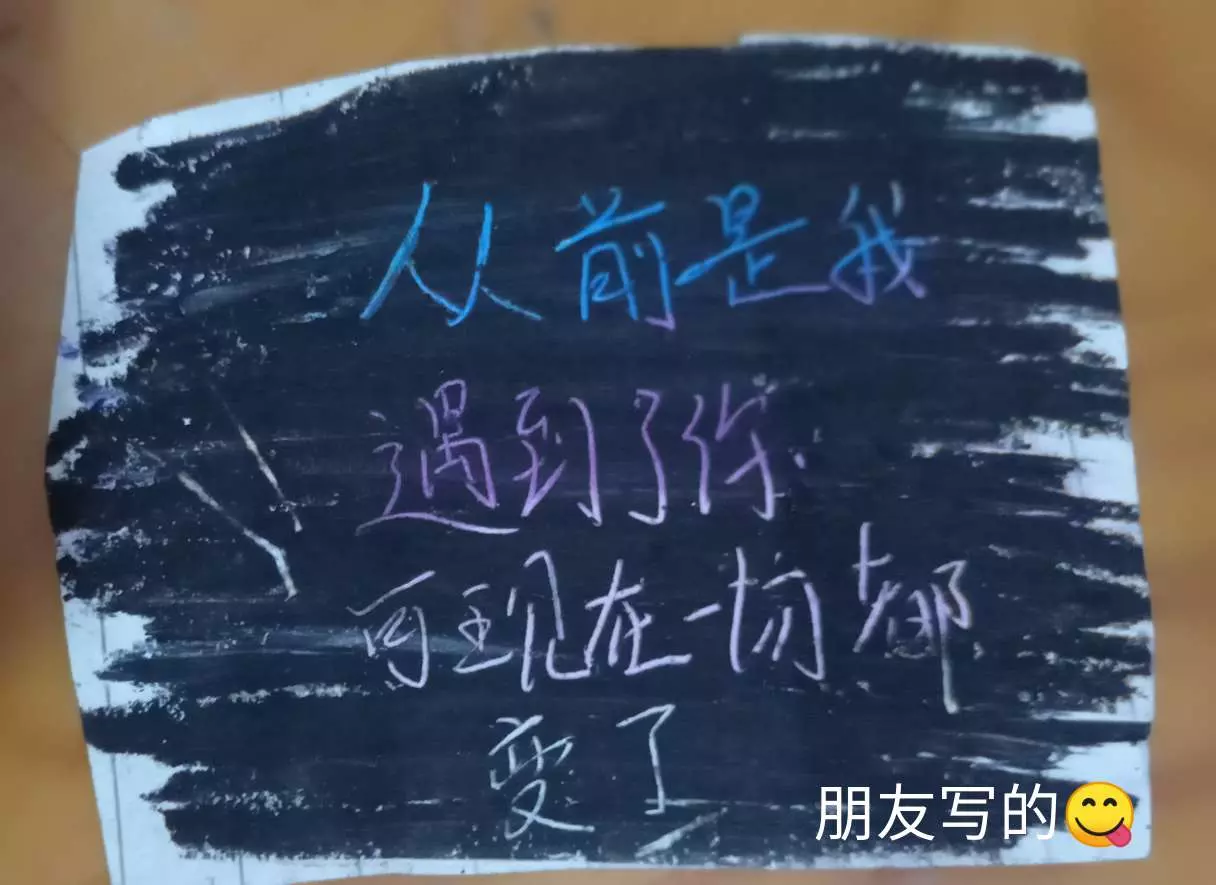 从前是我
遇到了你.
可现在一切都
变了
朋友写的😋